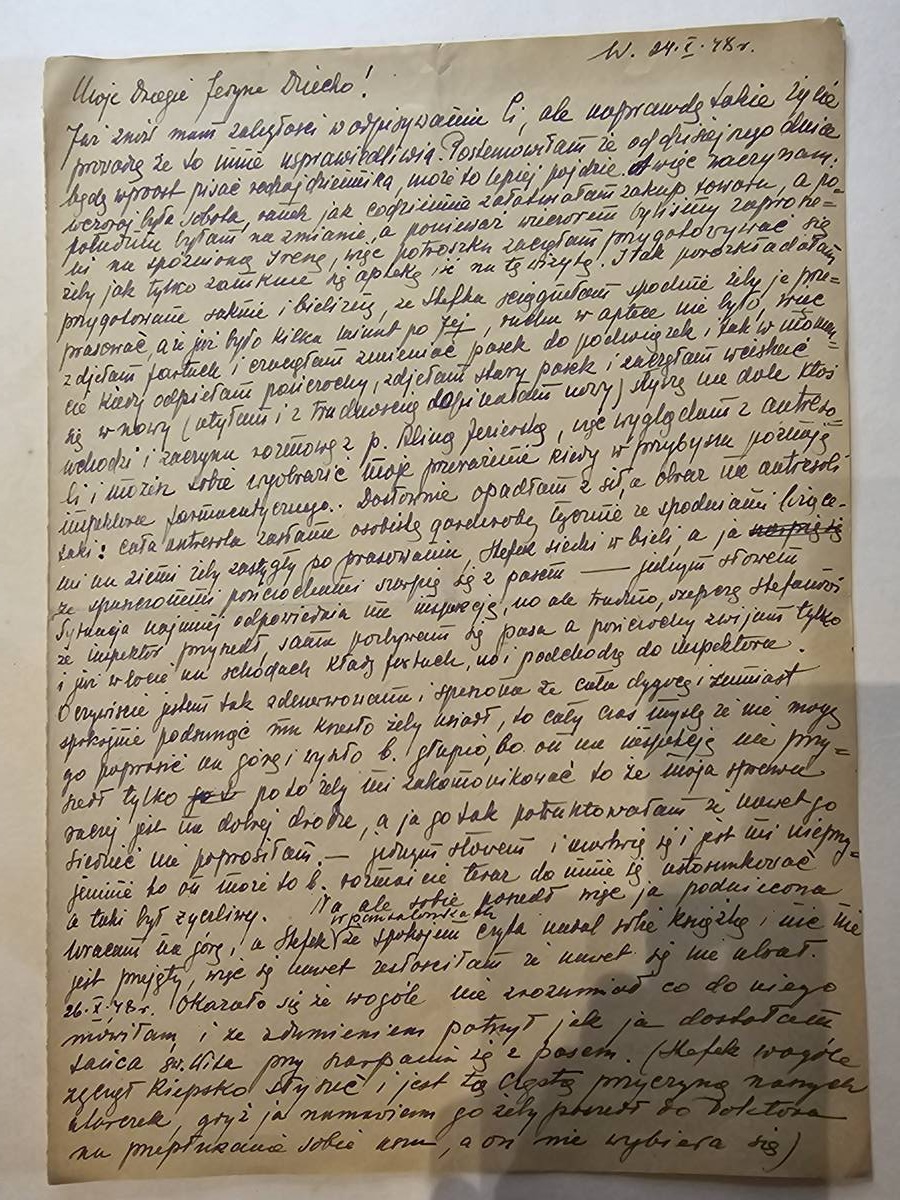 W. 24.X.48 r.
Moje Drogie Jedyne Dziecko!
Już znów mam zaległości w odpisywaniu Ci, ale naprawdę takie życie
prowadzę że to mnie usprawiedliwia. Postanowiłam że od dzisiejszego dnia
będę wprost pisać rodzaj dziennika, może to lepiej pójdzie. A więc zaczynam:
wczoraj była sobota, ranek jak codziennie załatwiałam zakup towaru, a po=
południu byłam na zmianie, a ponieważ wieczorem byliśmy zaprosze=
ni na spóźnioną Irenę, więc potroszku zaczęłam przygotowywać się
żeby jak tylko zamknie się aptekę iść na tę wizytę. I tak porozkładałam
przygotowane suknie i bieliznę, ze Stefka ściągnęłam spodnie żeby je prze=
prasować, a że już było kilka minut po 7ej, ruchu w aptece nie było, więc
zdjęłam fartuch i zaczęłam zmieniać pasek do podwiązek i tak w momen=
cie kiedy odpięłam pończochy, zdjęłam stary pasek i zaczęłam wciskać
się w nowy (utyłam i z trudnością dopinałam nowy) słyszę na dole ktoś
wchodzi i zaczyna rozmowę z p. Aliną Jezierską, więc wyglądam z antreso=
li i możesz sobie wyobrazić moje przerażenie kiedy w przybyszu poznaję
inspektora farmaceutycznego. Dosłownie opadłam z sił, a obraz na antresoli
taki: cała antresola zasłana osobistą garderobą łącznie ze spodniami leżące=
mi na ziemi żeby zastygły po prasowaniu Stefek siedzi w bieli, a ja
ze spuszczonemi pończochami szarpię się z pasem — jednym słowem
sytuacja najmniej odpowiednia na inspekcję, no ale trudno, szepczę Stefanowi
że inspektor przyszedł, sama pozbywam się pasa a pończochy zwijam tylko
i już w locie na schodach kładę fartuch, no i podchodzę do inspektora.
Oczywiście jestem tak zdenerwowana i speszona że cała dygocę i zamiast
spokojnie podsunąć mu krzesło żeby usiadł, to cały czas myślę że nie mogę
go poprosić na górę i wyszło b. głupio, bo on na inspekcję nie przy=
szedł tylko po to żeby mi zakomunikować to że moja sprawa
raczej jest na dobrej drodze, a ja go tak potraktowałam że nawet go
siedzieć nie poprosiłam. — jednym słowem i martwię się i jest mi nieprzy=
jemnie bo on może to b. rozmaicie teraz do mnie się ustosunkować
a taki był życzliwy. No ale sobie poszedł więc ja podniecona
wracam na górę, a Stefek ze spokojem czyta nadal sobie książkę i nic nie
jest przejęty, więc się nawet rozzłościłam że nawet się nie ubrał.
26.X.48 r. Okazało się że wogóle nie zrozumiał co do niego
mówiłam i ze zdumieniem patrzył jak ja dostałam
tańca św. Wita przy szarpaniu się z pasem. (Stefek wogóle
zaczął kiepsko słyszeć i jest to częstą przyczyną naszych
utarczek, gdyż ja namawiam go żeby poszedł do doktora
na przepłukanie sobie uszu, a on nie wybiera się)